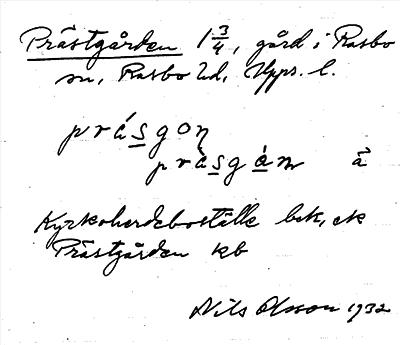 Prästgården 1 3/4, gård i Rasbo
sn, Rasbo hd, Upps. l.
prásgon
pràsgàn å
Kyrkoherdeboställe bek, ek
Prästgården kb
Nils Olsson 1932